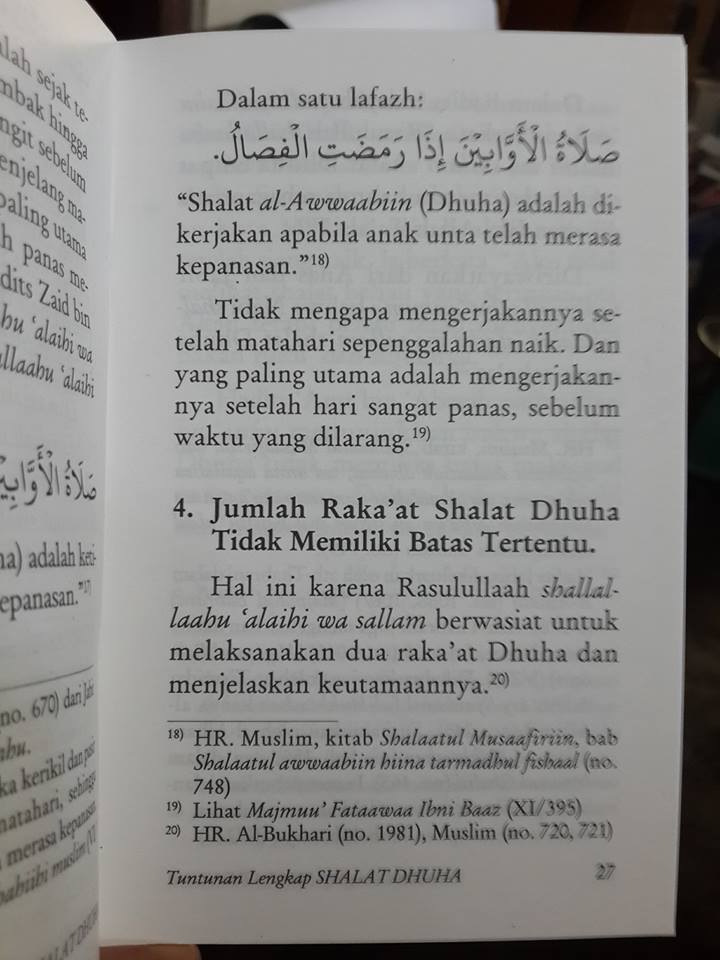 lah sejak te-
mbak hingga
ngit sebelum
enjelang ma-
paling utama
h panas me-
dits Zaid bin
hu ‘alaihi wa
llaahu ‘alaihi
صَلَاةُ الْأَوَّابِيْ
ha) adalah keti-
epanasan.”17)
no. 670) dari Jabi
hu.
ka kerikil dan pasi
natahari, sehingg
merasa kepanasan
HALAT DHUH
Dalam satu lafazh:
صَلَاةُ الْأَوَّابِيْنَ إِذَا رَمَضَتِ الْفِصَالُ.
“Shalat al-Awwaabiin (Dhuha) adalah di-
kerjakan apabila anak unta telah merasa
kepanasan.”18)
Tidak mengapa mengerjakannya se-
telah matahari sepenggalahan naik. Dan
yang paling utama adalah mengerjakan-
nya setelah hari sangat panas, sebelum
waktu yang dilarang.19)
4. Jumlah Raka’at Shalat Dhuha
Tidak Memiliki Batas Tertentu.
Hal ini karena Rasulullaah shallal-
laahu ‘alaihi wa sallam berwasiat untuk
melaksanakan dua raka’at Dhuha dan
menjelaskan keutamaannya.20)
18) HR. Muslim, kitab Shalaatul Musaafiriin, bab
Shalaatul awwaabiin hiina tarmadhul fishaal (no.
748)
19) Lihat Majmuu’ Fataawaa Ibni Baaz (XI/395)
20) HR. Al-Bukhari (no. 1981), Muslim (no. 720, 721)
Tuntunan Lengkap SHALAT DHUHA 27